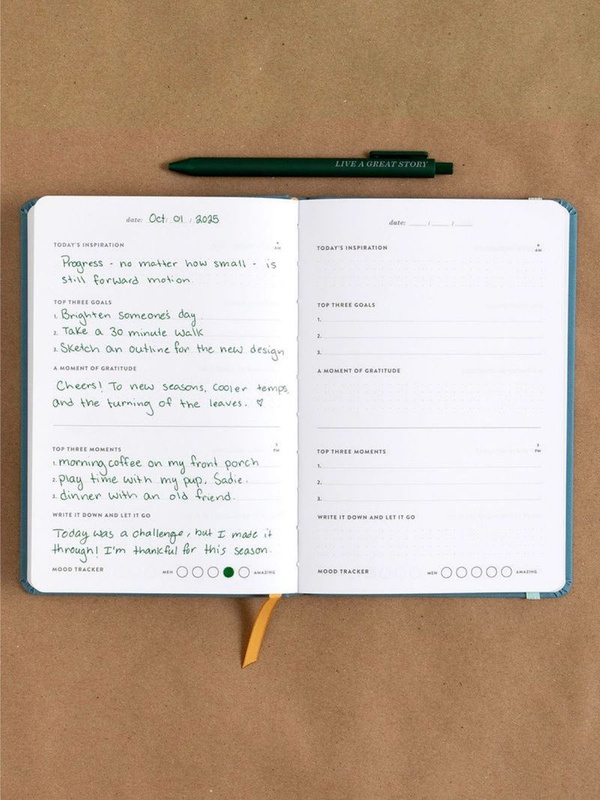 LIVE A GREAT STORY
date: Oct 01 2025
TODAY'S INSPIRATION
AM
Progress - no matter how small - is
still forward motion.
TOP THREE GOALS
1. Brighten someone's day
2. Take a 30 minute walk
3. Sketch an outline for the new design
A MOMENT OF GRATITUDE
Cheers! To new seasons, cooler temps,
and the turning of the leaves. ♡
TOP THREE MOMENTS
PM
1. morning coffee on my front porch
2. play time with my pup, Sadie.
3. dinner with an old friend.
WRITE IT DOWN AND LET IT GO
Today was a challenge, but I made it
through! I'm thankful for this season.
MOOD TRACKER MEH AMAZING
date: / /
TODAY'S INSPIRATION
AM
TOP THREE GOALS
1.
2.
3.
A MOMENT OF GRATITUDE
TOP THREE MOMENTS
PM
1.
2.
3.
WRITE IT DOWN AND LET IT GO
MOOD TRACKER MEH AMAZING